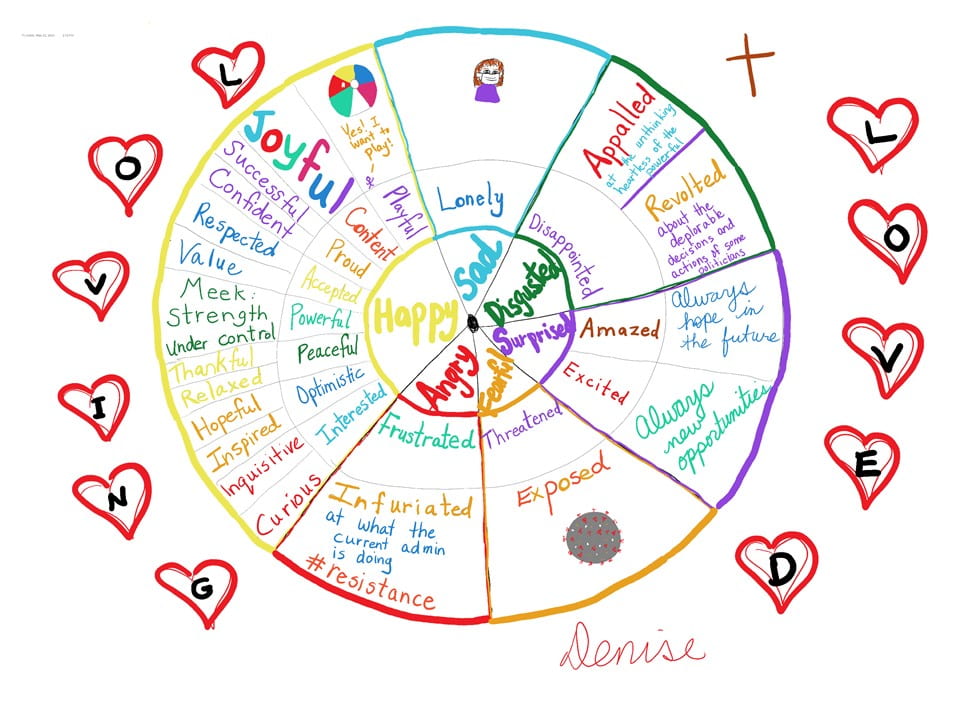 L
O
V
I
N
G
L
O
V
E
D
Happy
Playful
Yes! I
want to
play!
Joyful
Content
Successful
Confident
Proud
Respected
Value
Accepted
Meek:
Strength
under control
Powerful
Thankful
Relaxed
Peaceful
Hopeful
Inspired
Optimistic
Inquisitive
Curious
Interested
Sad
Lonely
Disgusted
Disappointed
Appalled
at the unthinking
heartless of the
powerful
Revolted
about the
deplorable
decisions and
actions of some
politicians
Surprised
Amazed
Always
hope in
the future
Excited
Always
new
opportunities
Fearful
Threatened
Exposed
Angry
Frustrated
Infuriated
at what the
current admin
is doing
#resistance
Denise